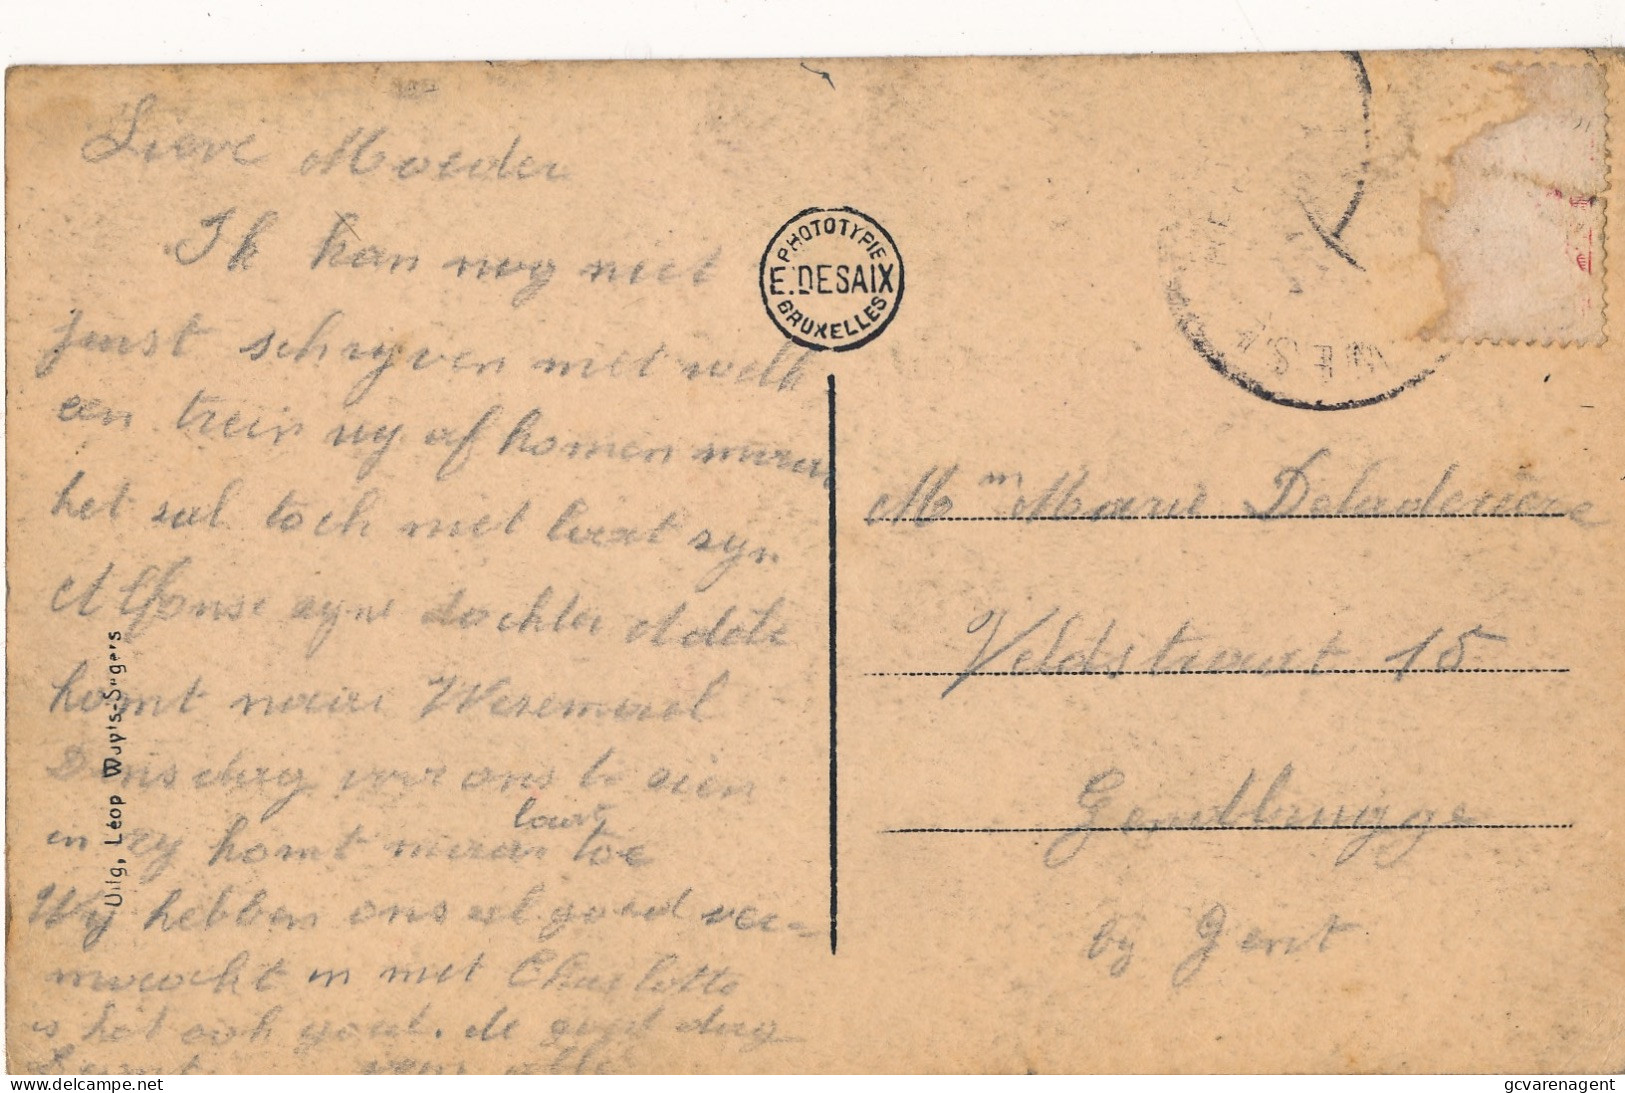 Lieve Moeder
Ik kan nog niet
juist schryven met welk
een trein wy af komen maar
het sal toch niet laat syn
Alfonse syne dochter Odile
komt naar Wesemael
Densdag voor ons te sien
en zy komt maar laat toe
Wy hebben ons al goed ver-
maackt en met Charlotte
is het ook goed. de goed dag
van alle
PHOTOTYPIE
E. DESAIX
BRUXELLES
Uitg. Léop Wuyts-Segers
Mm Marie Deladerière
Veldstraat 15
Gendbrugge
by Gent
gcvarenagent